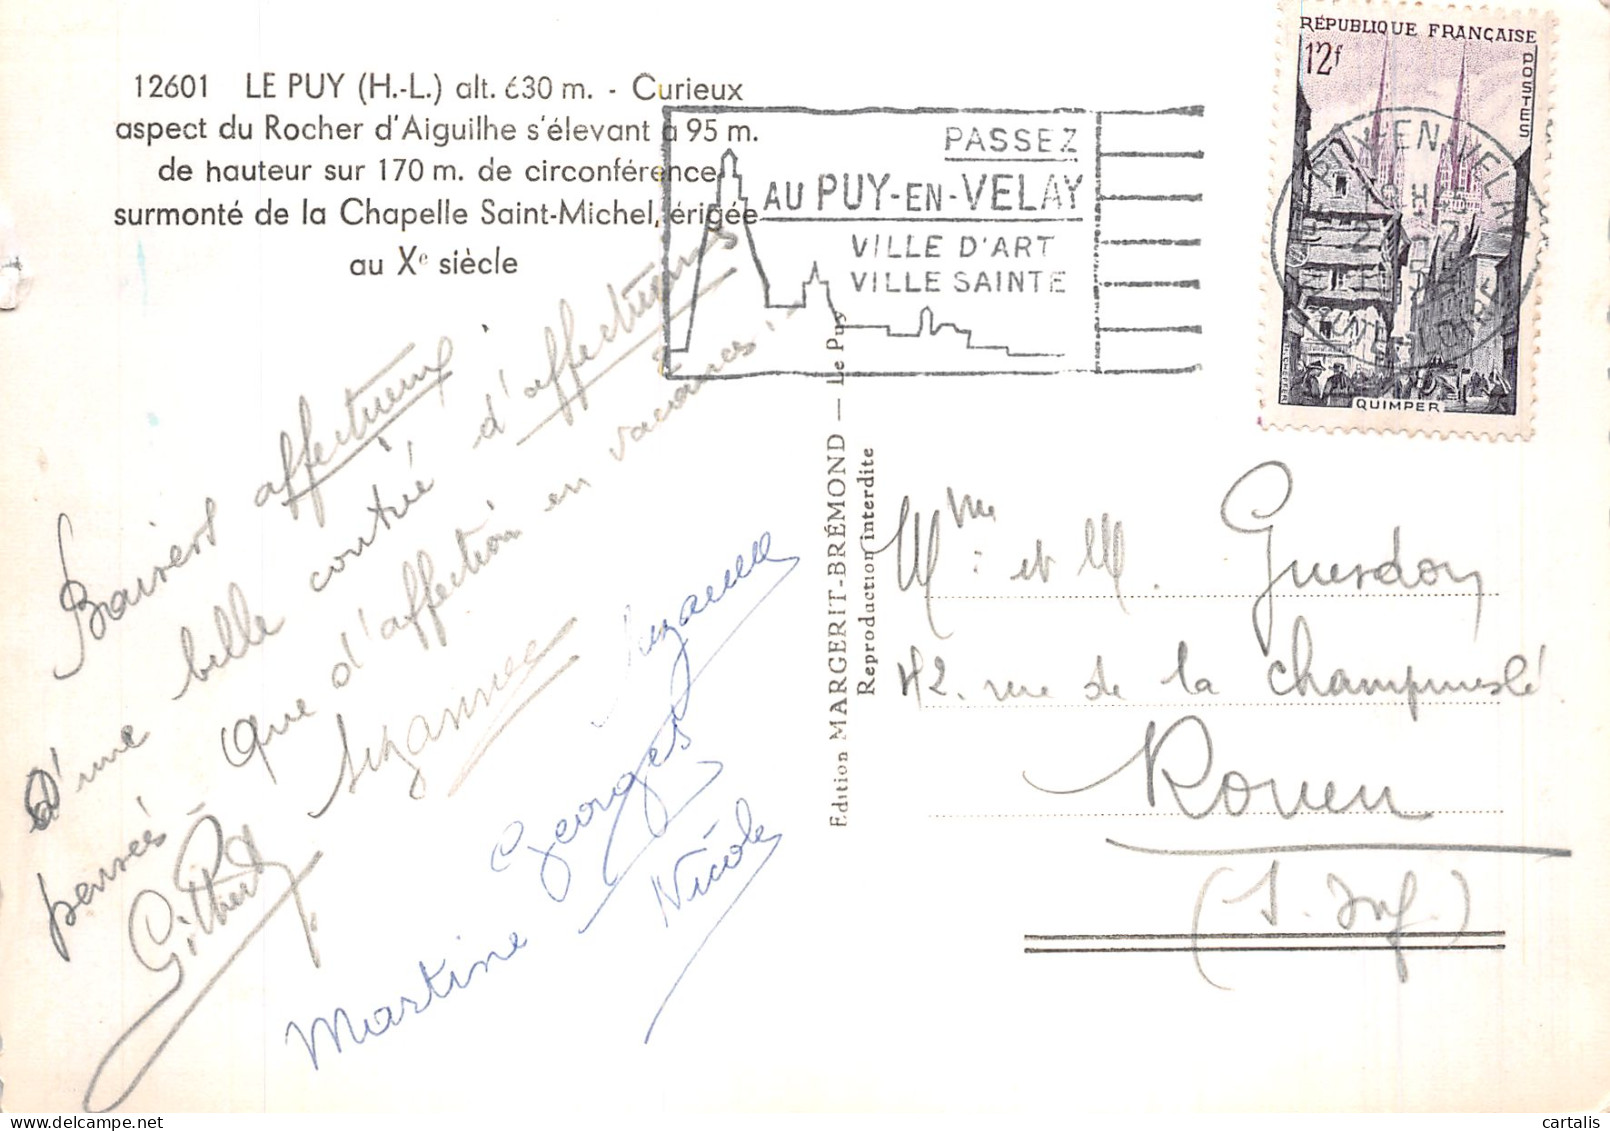 12601 LE PUY (H.-L.) alt. 630 m. - Curieux
aspect du Rocher d'Aiguilhe s'élevant à 95 m.
de hauteur sur 170 m. de circonférence,
surmonté de la Chapelle Saint-Michel, érigée
au Xe siècle
PASSEZ
AU PUY-EN-VELAY
VILLE D'ART
VILLE SAINTE
RÉPUBLIQUE FRANÇAISE
12f
POSTES
QUIMPER
LE PUY-EN-VELAY
HAUTE LOIRE
Baisers affectueux
d'une belle contrée d'affectueuses
pensées - que d'affection en vacances! -
Suzanne
Gilbert
Suzanne
Georges
Nicole
Martine
Edition MARGERIT-BRÉMOND — Le Puy
Reproduction interdite
Mme et M. Guerdon
42. rue de la Champmeslé
Rouen
(S. Inf.)
cartalis